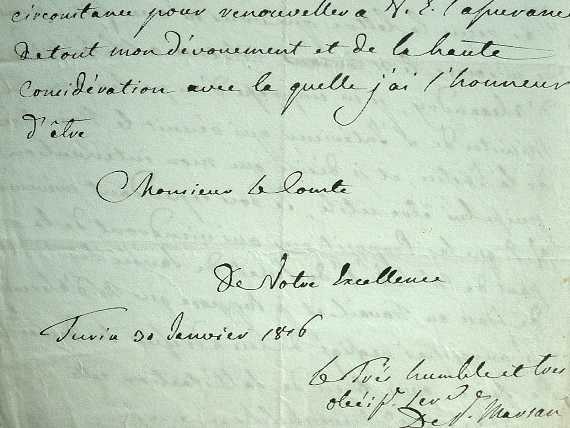 circonstance pour renouveller a V. E. l'assurance
de tout mon dévouement et de la haute
Considération avec la quelle j'ai l'honneur
d'être
Monsieur le Comte
De Votre Excellence
Turin 30 Janvier 1816
Le Très humble et très
obéiss.t serv.r
De S.t Marsan